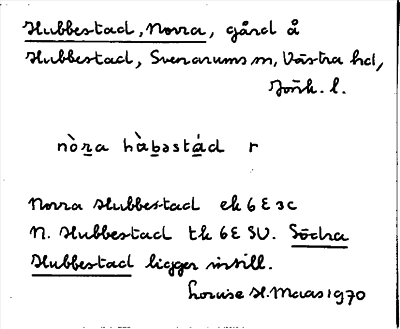 Hubbestad, Norra, gård å
Hubbestad, Svenarums sn, Västra hd,
Jönk. l.
nò̀ra hàbəstád r
Norra Hubbestad ek 6E 3c
N. Hubbestad tk 6E SV. Södra
Hubbestad ligger intill.
Louise H. Maas 1970